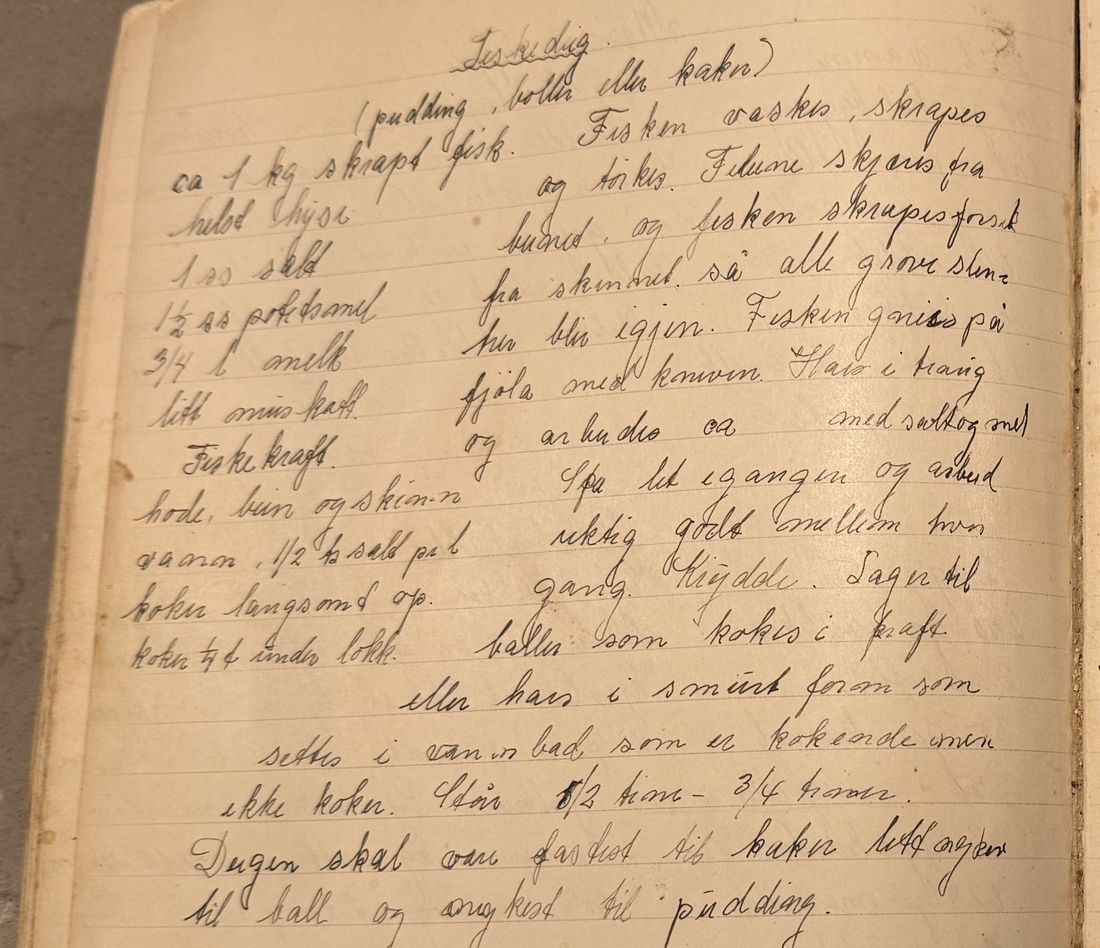 Fiskedeig.
(pudding, boller eller kaker)
ca 1 kg skrapt fisk.
helst hyse
1 ss salt
1½ ss potetmel
3/4 l melk
litt muskatt.
Fiskekraft.
hode, bein og skinn
vann, 1/2 ts salt pr l
koker langsomt op.
koker ¼ t under lokk.
Fisken vaskes, skrapes
og törkes. Fileene skjæres fra
beinet, og fisken skrapes forsik
fra skinnet. så alle grove sten=
her blir igjen. Fisken gnies på
fjöla med kniven. Haes i traug
og arbeides ca med salt og mel
Spe let egangen og arbeid
riktig godt mellem hver
gang. Krydde. Lager til
baller som kokes i kraft
eller haes i smurt form som
settes i vannbad som er kokende men
ikke koker. Står 1/2 time – 3/4 timer.
Deigen skal være fastest til kaker lett myker
til ball og mykest til pudding.